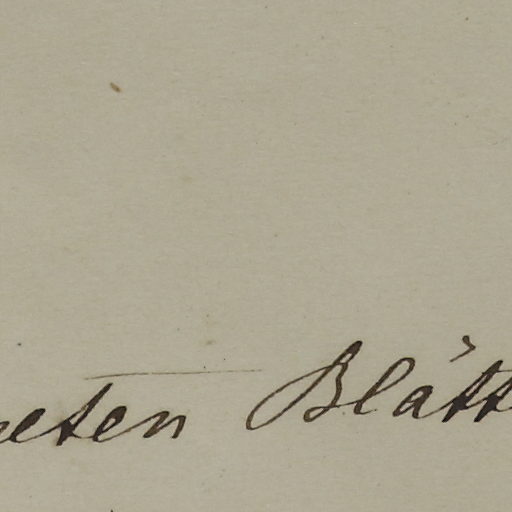 eten Blätt